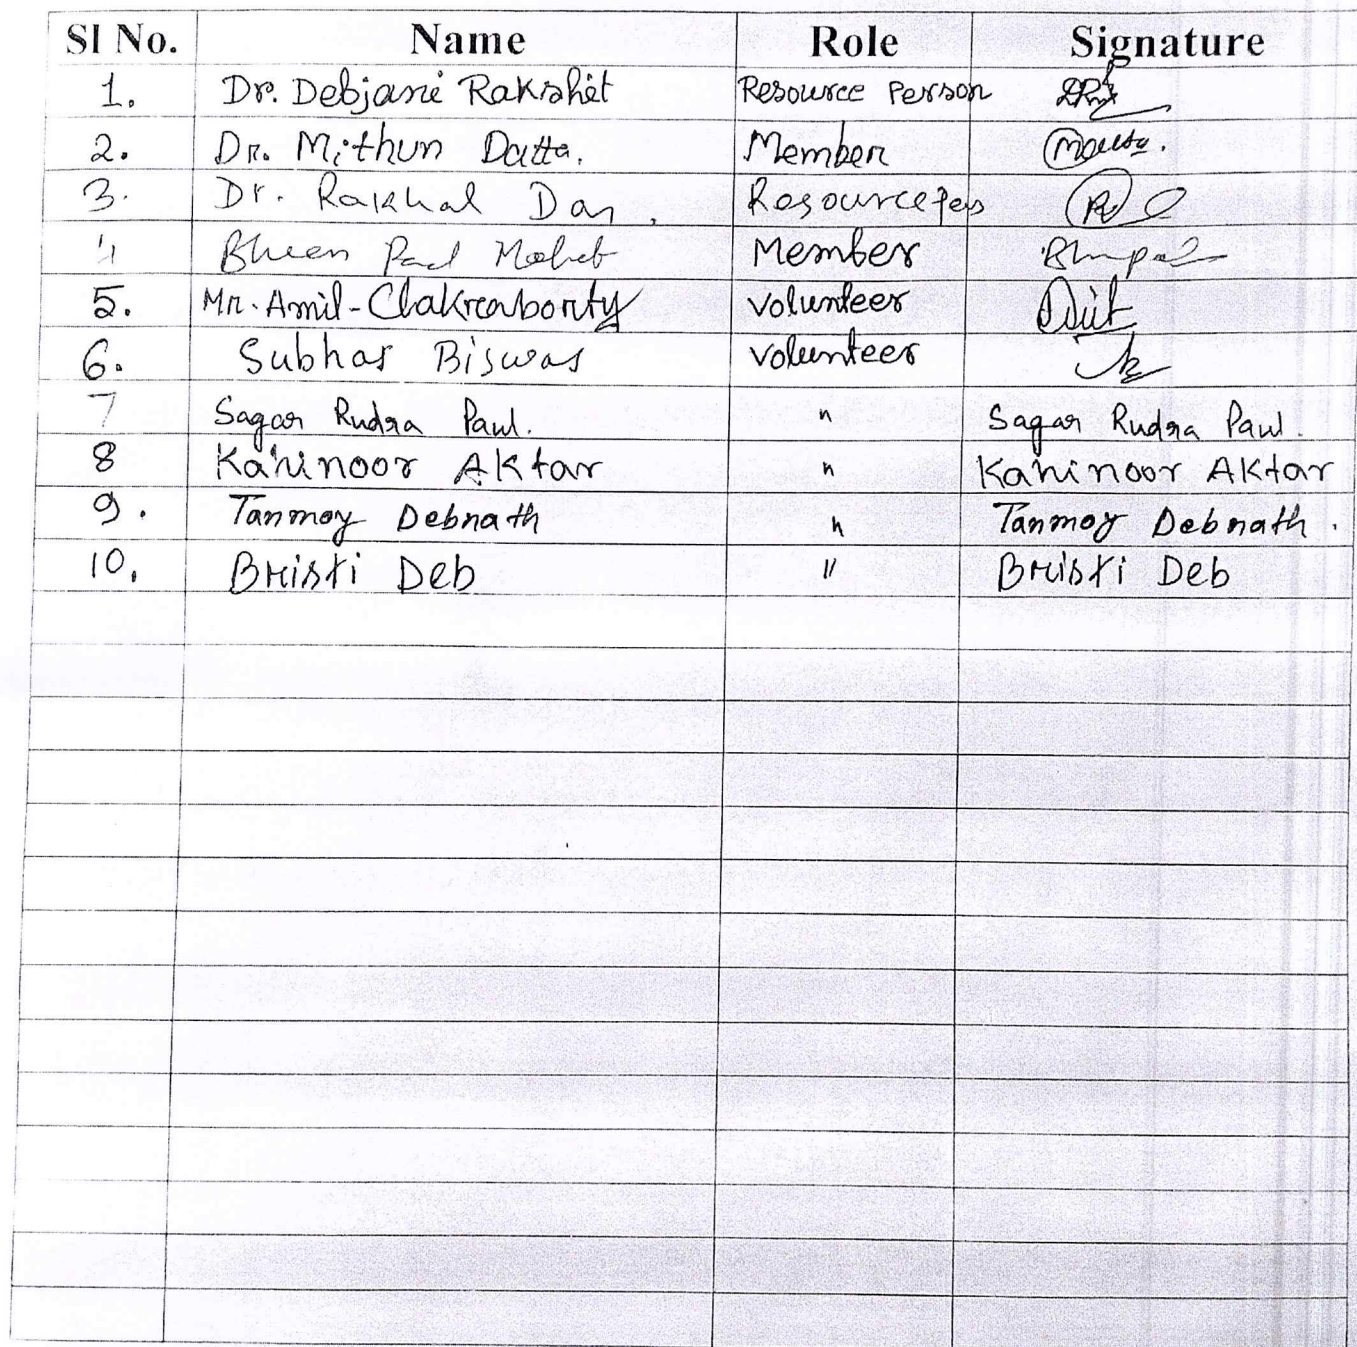 Sl No. Name Role Signature
1. Dr. Debjani Rakshit Resource Person
2. Dr. Mithun Datta. Member
3. Dr. Rakhal Das. Resource Pers
4 Member
5. Mr. Amil-Chakraborty Volunteer
6. Subhas Biswas Volunteer
7 Sagar Rudra Paul. " Sagar Rudra Paul.
8 Kahinoor Aktar " Kahinoor Aktar
9. Tanmoy Debnath " Tanmoy Debnath.
10. Bristi Deb " Bristi Deb